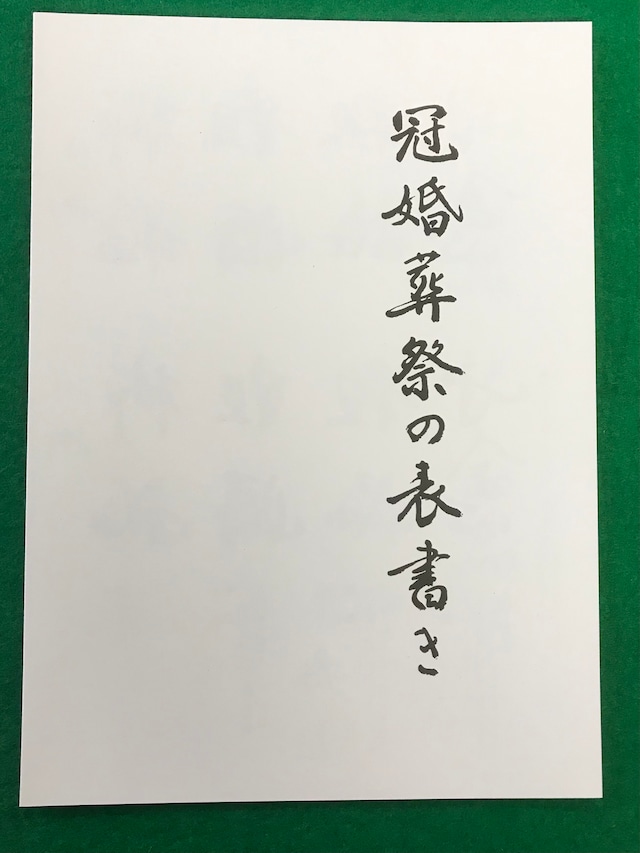 冠婚葬祭の表書き